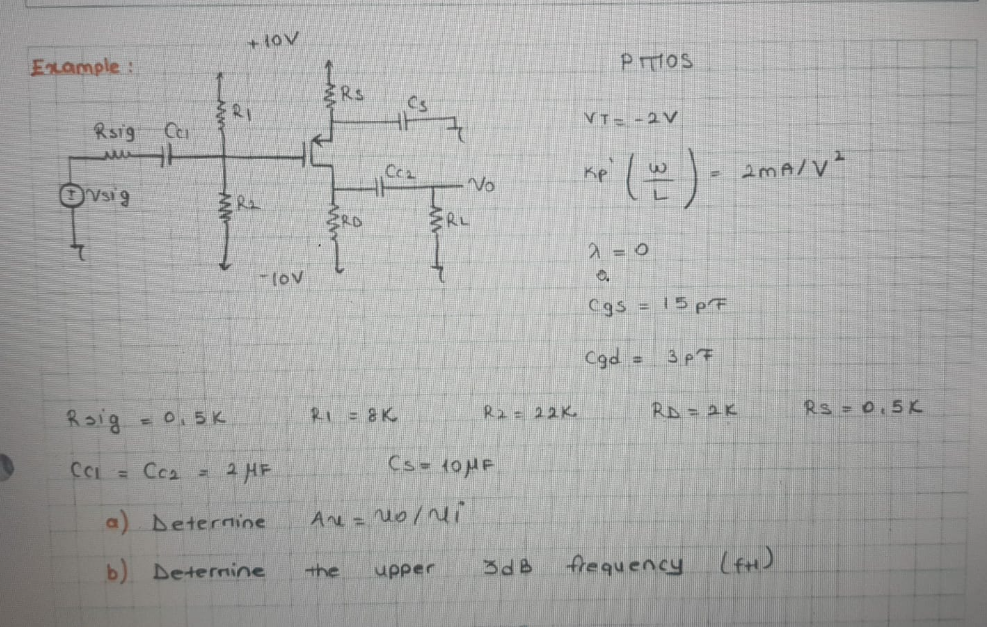 Example:
+10V
R1
Rs
Cs
Rsig
Cc1
Vsig
R2
Cc2
Vo
RD
RL
-10V
PMOS
VT = -2V
Kp' (W/L) = 2mA/V²
λ = 0
Cgs = 15 pF
Cgd = 3 pF
Rsig = 0,5K R1 = 8K R2 = 22K RD = 2K RS = 0,5K
Cc1 = Cc2 = 2 μF Cs = 10μF
a) Determine Av = vo/vi
b) Determine the upper 3dB frequency (fH)